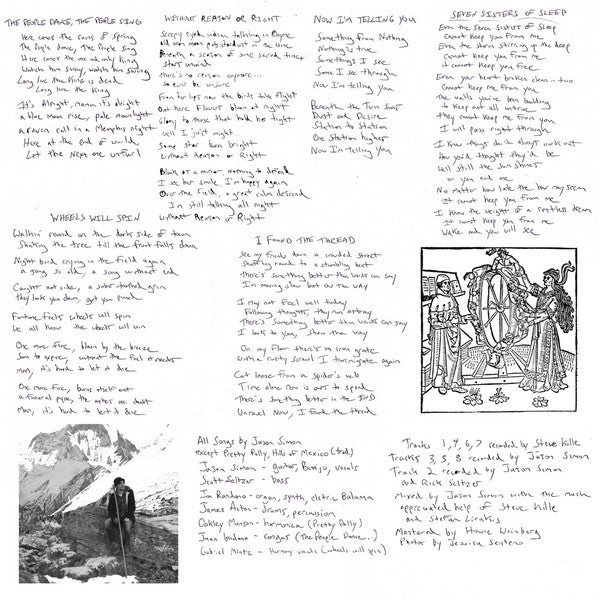 THE PEOPLE DANCE, THE PEOPLE SING
Here comes the rains of Spring
The People Dance, The People Sing
Here comes the one and only King
Watch him sway, watch him swing
Long live the King is Dead
Long live the King
It's Alright, mama it's alright
a blue moon rise, pale moonlight
a raven call in a Memphis night
Here at the end of world
Let the Next one unfurl
WITHOUT REASON OR RIGHT
Sleepy eyed, talking in Rhyme
Old man moon pots stardust in the wine
Beneath a sacred tract
start unwind
There's no reason anymore...
to ever be unsure
From her lips now the birds take flight
Out here Flowers bloom at night
Glory to those that hold her tight
Well I just might
Some star burn bright
without Reason or Right
Black as a minor, nothing to defend
I see her smile, I'm happy again
Over the field, a great calm descend
I'm still talking all night
without Reason or Right
NOW I'M TELLING YOU
Something from Nothing
Nothing is true
Somethings I see
Some I see through
Now I'm telling you
Beneath the Turn Soars
Dust and Desire
Station to Station
One Station higher
Now I'm Telling You
SEVEN SISTERS OF SLEEP
Even the seven sisters of Sleep
cannot keep you From me
Even the storm stirring in the deep
cannot keep you from me
it cannot keep you free
Even your heart broken clean.. two
Cannot keep me From you
The walls you've been building
to keep out all untrue
they cannot keep me From you
I will pass right through
I know things don't always work out
How you'd thought they'd be
Well still the sun shines
on you and me
No matter how late the hour may seem
it cannot keep you from me
I know the weight of a restless dream
it cannot keep you from me
Wake and you will see
WHEELS WILL SPIN
Walkin' round on the dark side of town
Shaking the tree till the fruit falls down
Night bird crying in the field again
a song so old, a song without end
Caught out side, a sober toothed grin
they look you down, got you pinned
Fortune tells wheels will spin
We all know the wheels will win
One more fire, blown by the breeze
Some to appear, without the fuel it needs
Man, it's hard to let it die
One more fire, burns itself out
a funeral pyre, the ashes are dust
Man, it's hard to let it die
I FOUND THE THREAD
See my friends down a crowded street
shuffling round to a stumbling beat
There's something better than words can say
I'm moving slow but on the way
I may not feel well today
Following thoughts, they run astray
There's something better than words can say
I look to you, show the way
On my Floor there's an iron grate
with a rusty scrawl I turn again
Cut loose from a spider's web
Time alone now is not to spend
There's something better in the END
Unravel Now, I Found the thread
All Songs by Jason Simon
except Pretty Polly, Hills of Mexico (trad)
Jason Simon - guitar, Banjo, vocals
Scott Seltzer - bass
Ian Rundano - organ, synth, electric Balama
James Acton - drums, percussion
Oakley Munson - harmonica (Pretty Polly)
Juan Londono - congas (The People Dance..)
Gabriel Mintz - Harmony vocals (wheels will spin)
Tracks 1, 4, 6, 7 recorded by Steve Kille
Tracks 3, 5, 8 recorded by Jason Simon
Track 2 recorded by Jason Simon
and Rick Seltzer
Mixed by Jason Simon with the much
appreciated help of Steve Kille
and Stefan Lirakis
Mastered by Howie Weinberg
Photo by Jessica Senteno